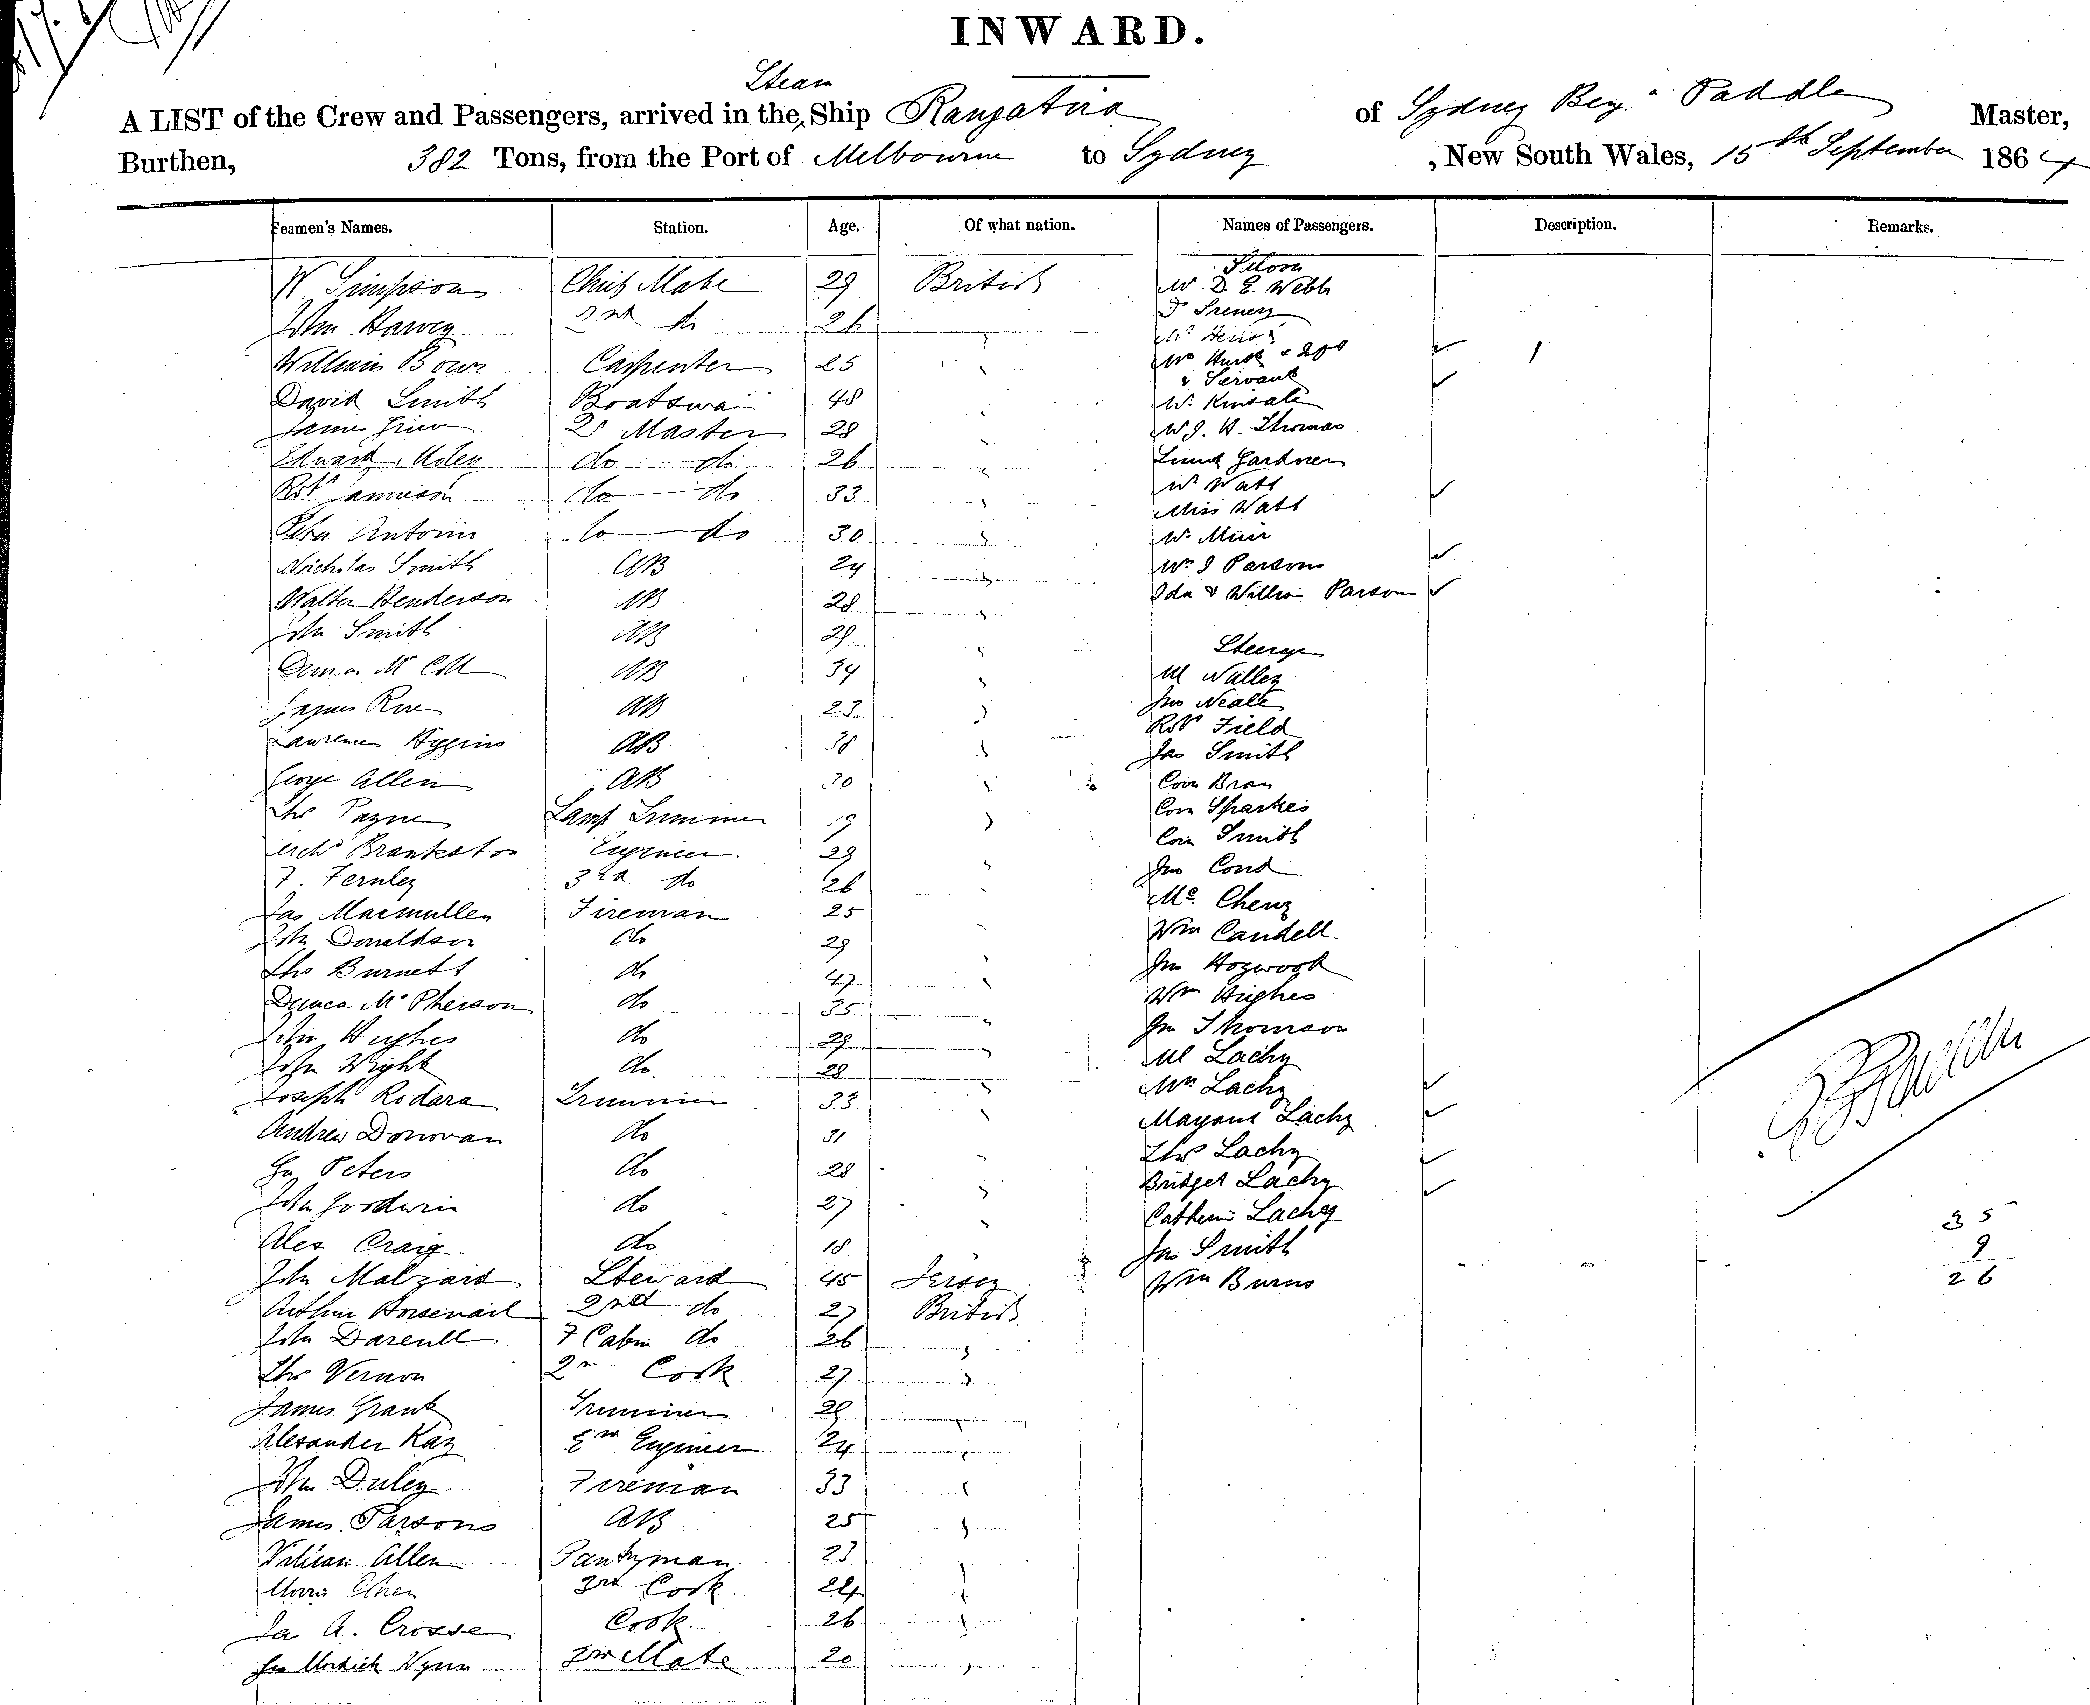 INWARD.
Steam
A LIST of the Crew and Passengers, arrived in the, Ship Rangatira of Sydney Benj. Paddle Master,
Burthen, 382 Tons, from the Port of Melbourne to Sydney, New South Wales, 15th September 1864
Seamen's Names. Station. Age. Of what nation. Names of Passengers. Description. Remarks.
Saloon
W Simpson Chief Mate 29 British W. D. E. Webb
John Harvey 2nd do 26
William Bown Carpenter 25
& Servant
David Smith Boatswain 48 Mr Kinsale
James Master 28 W. J. H. Thomas
Edward do do 26 Lieut Gardner
Robt Jamieson do do 33 Mr Watt
Miss Watt
Peter Antonie do do 30 Mr Muir
Nicholas Smith AB 24 Mrs J Parsons
Walter Henderson AB 28 Ida & William Parsons
John Smith AB 29
Steerage
AB 34 M Walley
James Roe AB 23 Jno Neale
Robt Field
Lawrence Higgins AB 38 Jas Smith
George Allen AB 30 Corn
Thos Payne Lamp Trimmer 19 Corn Sparkes
Corn Smith
Archd Brankston Engineer 29 Jno Cond
F. Fernley 3rd do 26
Mc Cheny
Jas Macmullen Fireman 25
John Donaldson do 29 Wm Candell
Thos Burnett do 47 Jno Hogwood
Duncan McPherson do 35 Wm Hughes
John Hughes do 29 Jno Thomson
John Wight do 28 Ml Lachy
Joseph Rodara Trimmer 33 Mrs Lachy
Andrew Donovan do 31 Margaret Lachy
Jno Peters do 28 Thos Lachy
Bridget Lachy
John Goodwin do 27 Catherine Lachy
35
Alex Craig do 18 Jas Smith
9
John Malzard Steward 45 Jersey Wm Burns
26
Arthur Horsenail 2nd do 27 British
John Darenll F Cabin do 26
Thos Vernon 2nd Cook 27
James Grant Trimmer 29
Alexander Kay 2nd Engineer 24
John Duley Fireman 33
James Parsons AB 25
William Allen Pantryman 23
3rd Cook 24
Jas A. Crosse Cook 26
Wynn Mate 20